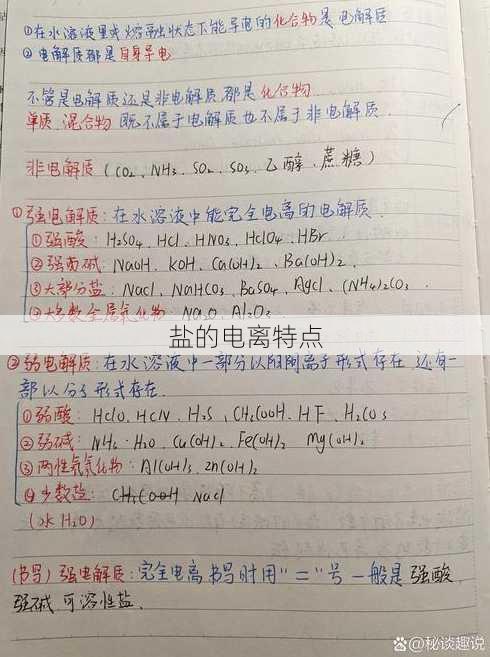 ①在水溶液里或熔融状态下能导电的化合物是电解质
②电解质都是自身导电
不管是电解质还是非电解质都是化合物
单质、混合物 既不属于电解质也不属于非电解质.
非电解质(CO₂、NH₃、SO₂、SO₃、乙醇、蔗糖)
①强电解质:在水溶液中能完全电离的电解质.
①强酸:H₂SO₄、HCl、HNO₃、HClO₄、HBr
②强碱:NaOH、KOH、Ca(OH)₂、Ba(OH)₂、
③大部分盐:NaCl、NaHCO₃、BaSO₄、AgCl、(NH₄)₂CO₃
④大多数金属氧化物 Na₂O、Al₂O₃
盐的电离特点
②弱电解质:在水溶液中一部分以阴阳离子形式存在 还有一
部以分子形式存在.
①弱酸:HClO、HCN、H₂S、CH₃COOH、HF、H₂CO₃
②弱碱:NH₃·H₂O、Cu(OH)₂、Fe(OH)₂ Mg(OH)₂
③两性氢氧化物:Al(OH)₃、Zn(OH)₂
④少数盐: CH₃COOH NaCl
(水H₂O)
(书写)强电解质:完全电离 书写时用"="号 一般是强酸、
强碱、可溶性盐.
百家号/秘谈趣说